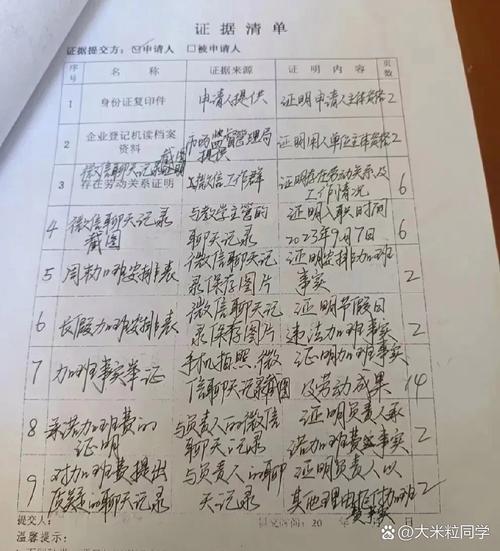 证据清单
证据提交方：☑申请人 □被申请人
序号 名称 证据来源 证明内容 页数
1 身份证复印件 申请人提供 证明申请人主体资格 2
2 企业登记机读档案资料 市场监督管理局提供 证明用人单位主体资格 2
3 微信聊天记录截图 存在劳动关系证明 微信工作群 证明存在劳动关系及工作情况 6
4 微信聊天记录截图 与教学主管的聊天记录 证明入职时间2023年9月7日 6
5 周末加班安排表 微信聊天记录保存图片 证明安排加班事实 2
6 长假加班安排表 微信聊天记录保存图片 证明节假日违法加班事实 2
7 加班事实举证 手机拍照、微信聊天记录截图 证明加班事实及劳动成果 14
8 承诺加班费的证明 与负责人的微信聊天记录 证明负责人承诺加班费事实 2
9 对加班费提出质疑的聊天记录 与负责人的聊天记录 证明负责人以其他理由抵付加班 2
提交人：
20 年 日
温馨提示：
@大米粒同学